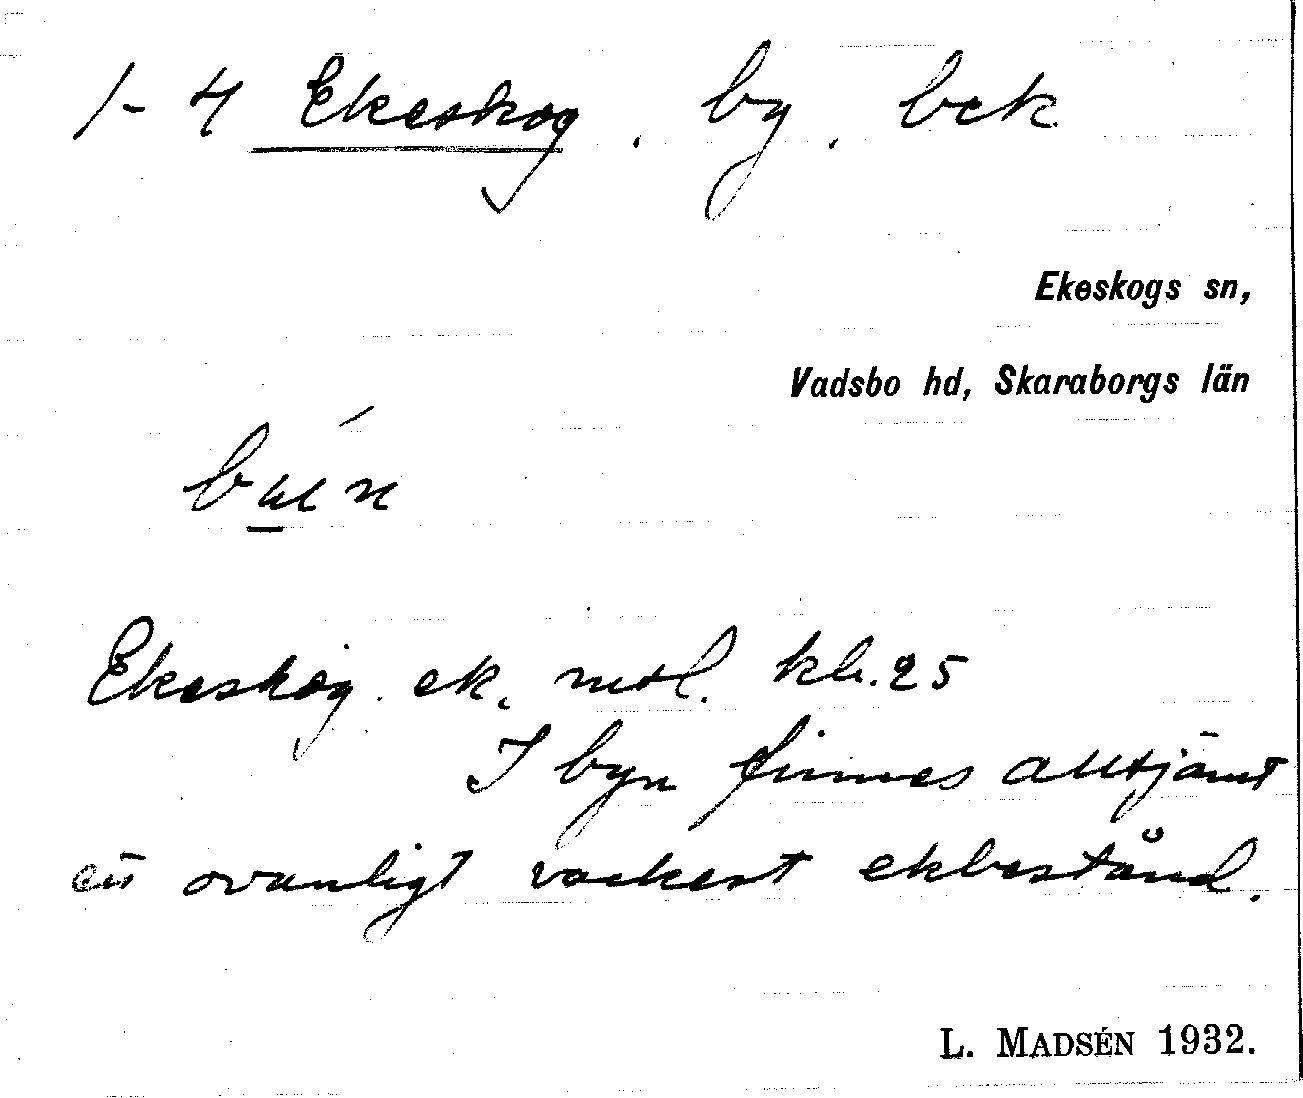 1-4 Ekeskog, by, bek
Ekeskogs sn,
Vadsbo hd, Skaraborgs län
Ekeskog. ek. mtl. kb. 25
I byn finnes alltjämt
ett ovanligt vackert ekbestånd.
L. MADSÉN 1932.